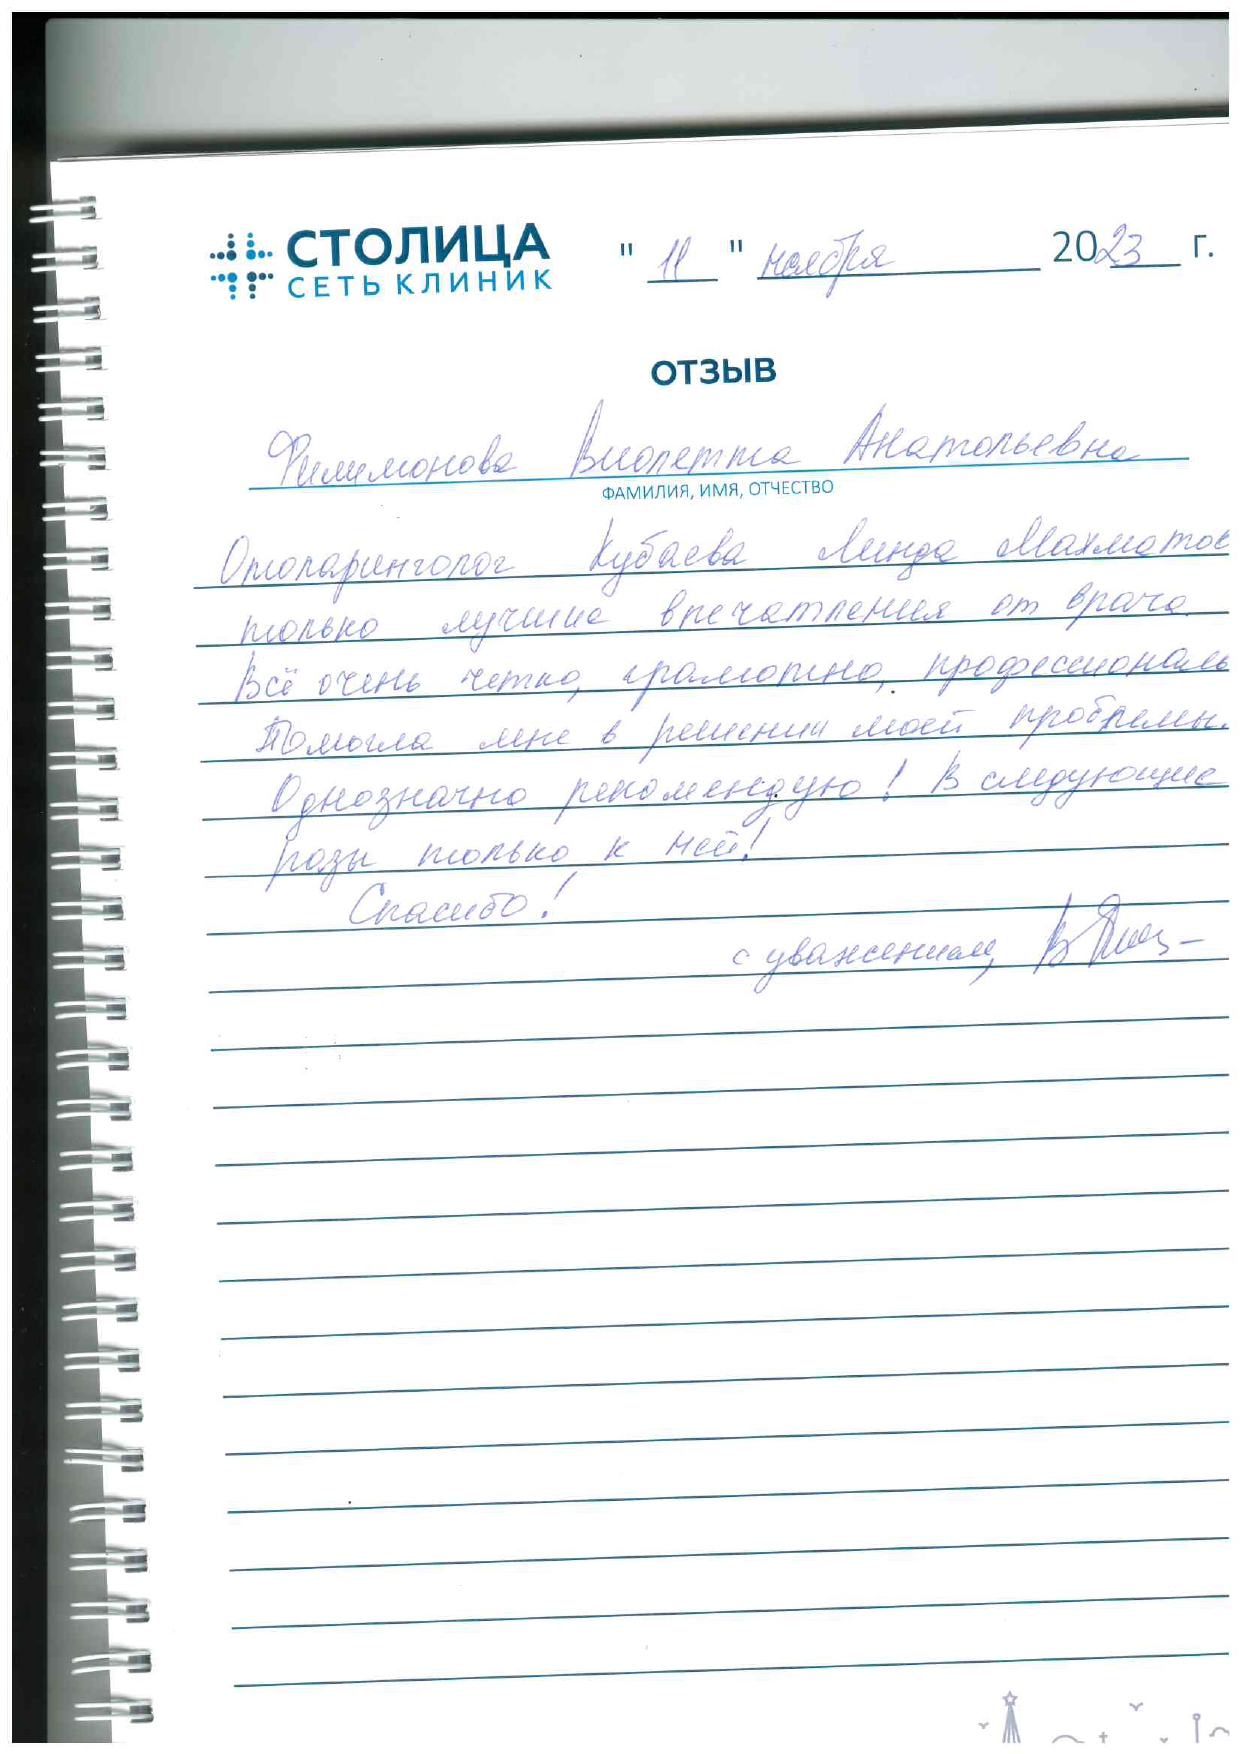 СТОЛИЦА
СЕТЬ КЛИНИК
" 11 " ноября 2023 г.
ОТЗЫВ
Филимонова Виолетта Анатольевна
ФАМИЛИЯ, ИМЯ, ОТЧЕСТВО
Отоларинголог Кубаева Линда Махматов
только лучшие впечатления от врача.
Всё очень четко, грамотно, профессиональ
Помогла мне в решении моей проблемы.
Однозначно рекомендую! В следующие
разы только к ней!
Спасибо!
с уважением,